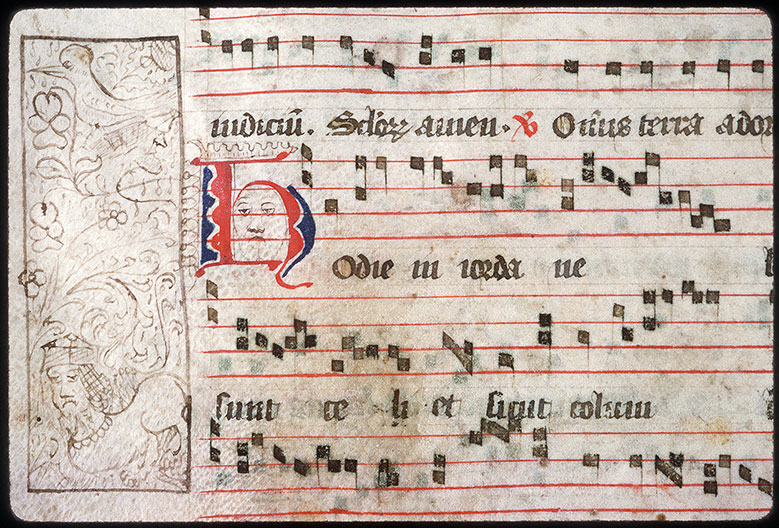 iudiciū. Sc̄lor̄ꝝ amen. ℟ Om̄is terra ador
Hodie in iorda ne
sunt ce li et sicut colum